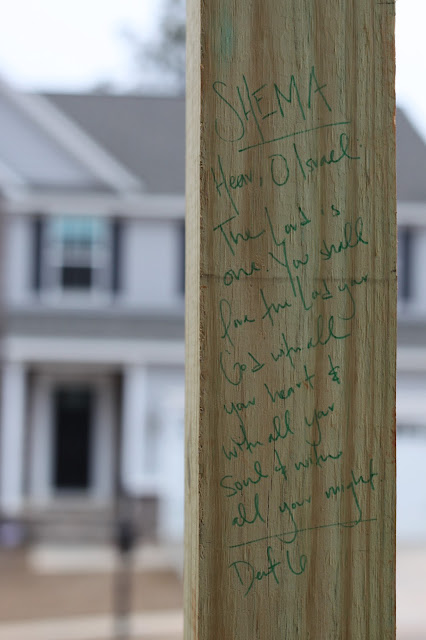 SHEMA
Hear, O Israel.
The Lord is
one. You shall
love the Lord your
God with all
your heart &
with all your
soul & with
all your might.
Deut 6